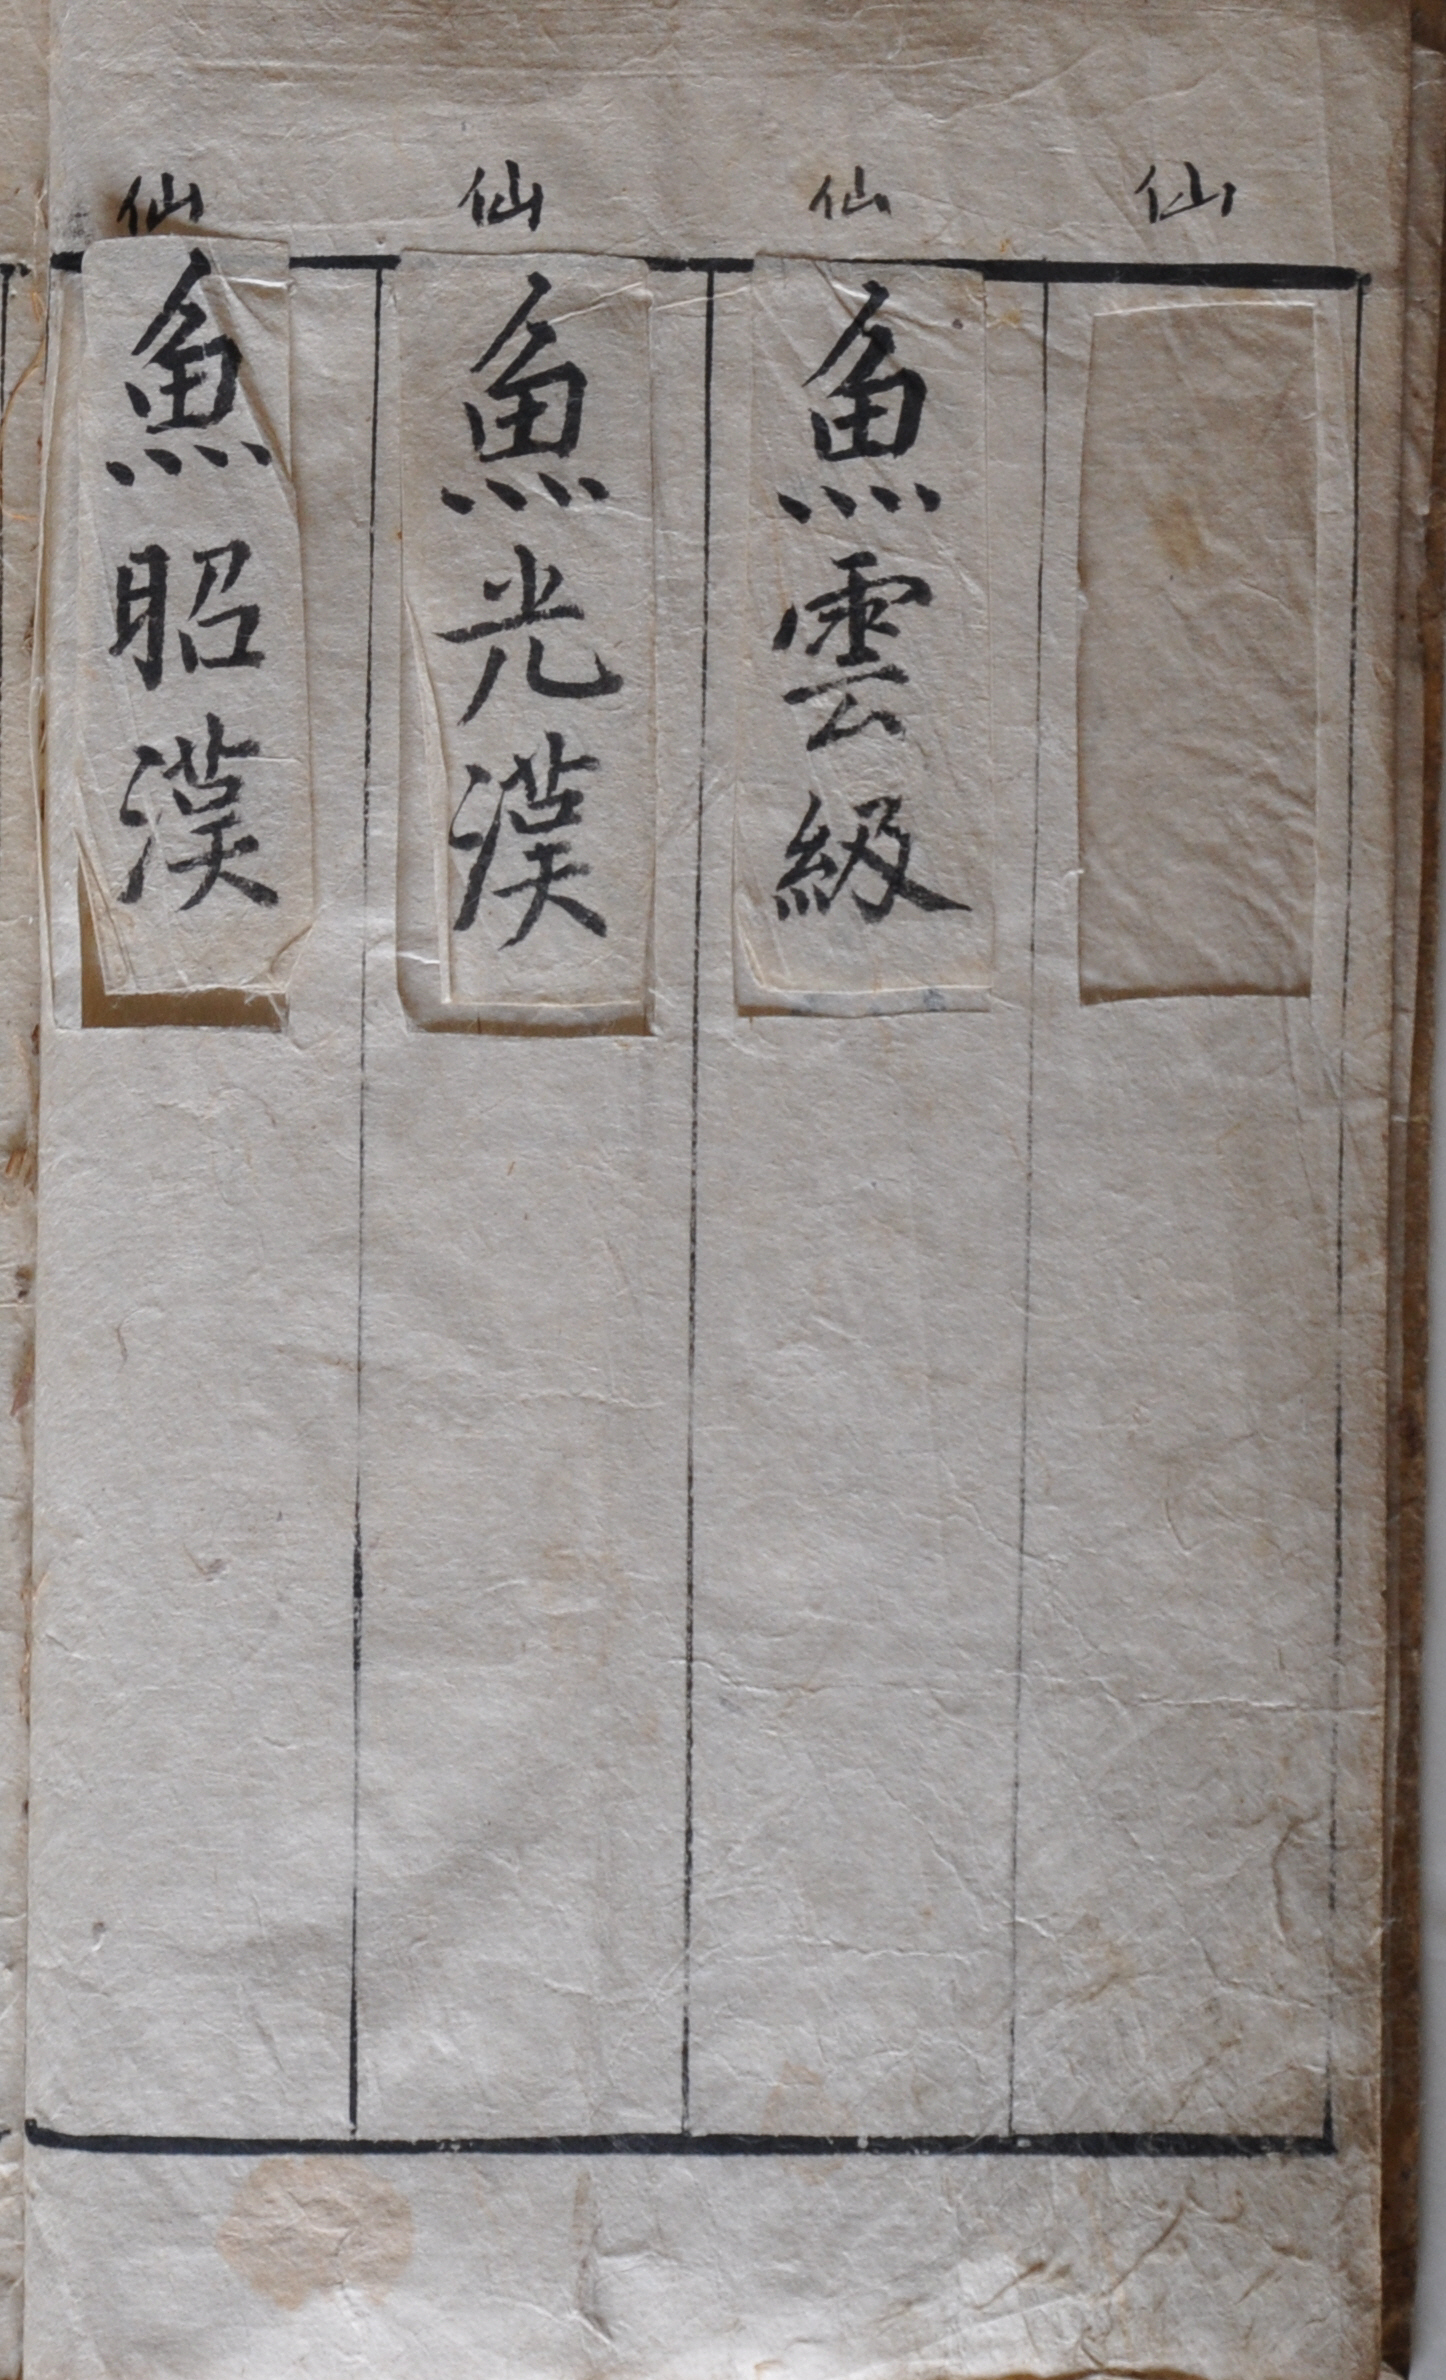 仙
仙
魚雲級
仙
魚光漢
仙
魚昭漢